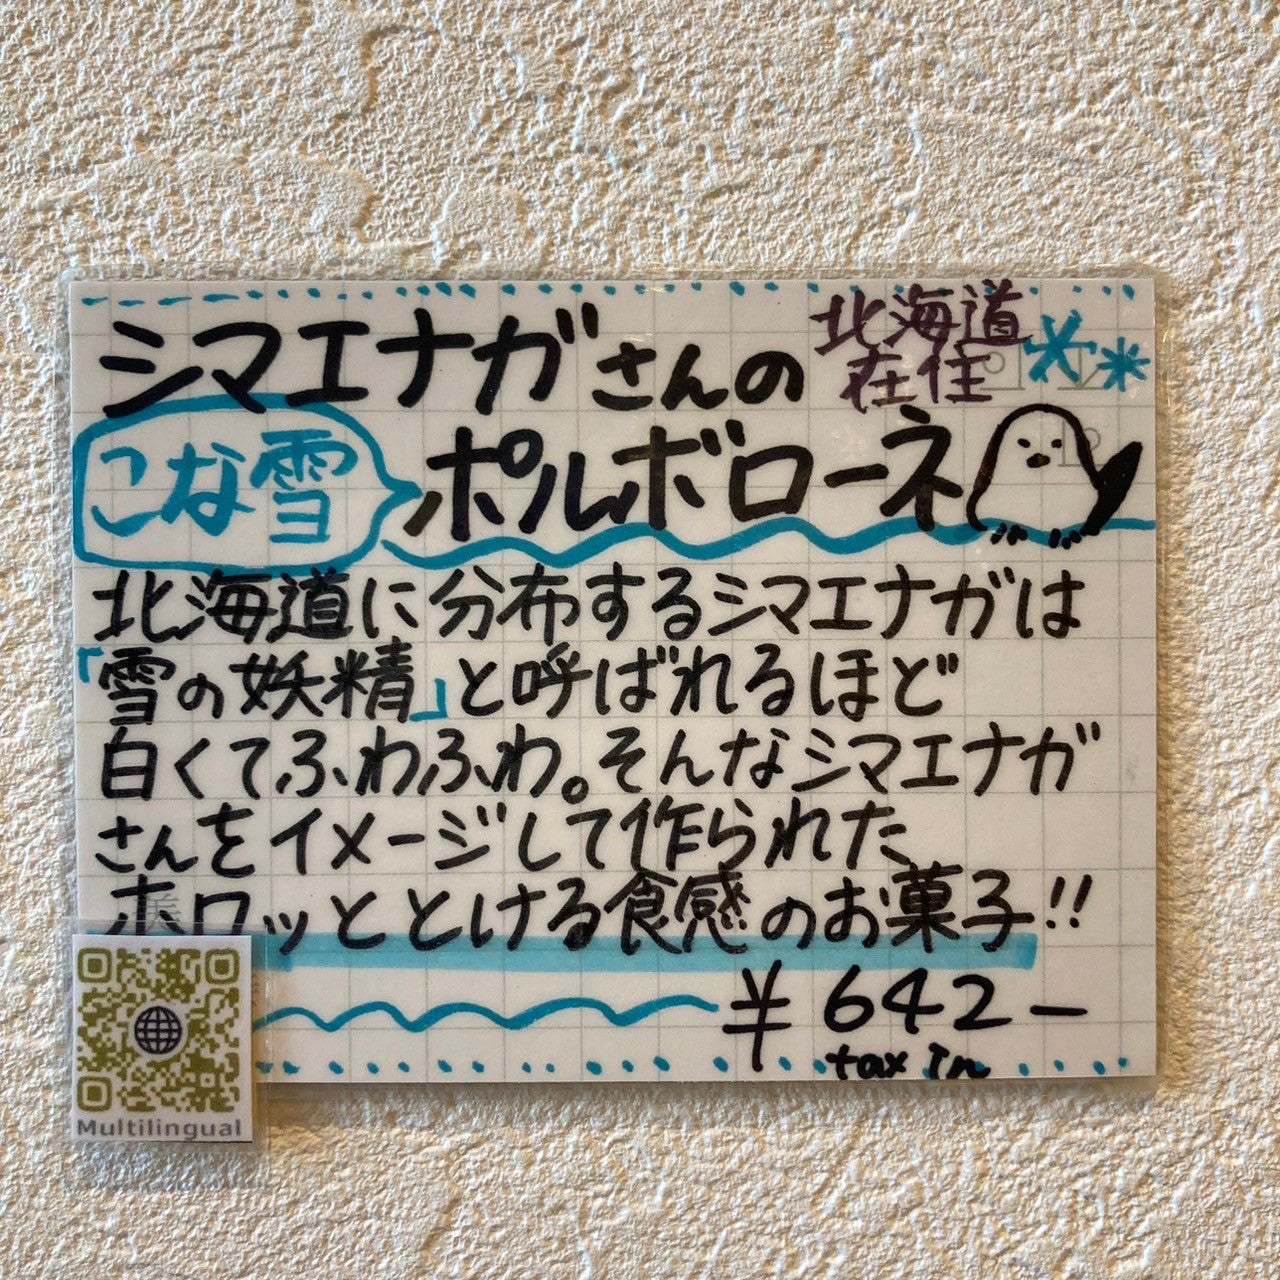 シマエナガさんの
北海道
在住
こな雪
ポルボローネ
北海道に分布するシマエナガは
「雪の妖精」と呼ばれるほど
白くてふわふわ。そんなシマエナガ
さんをイメージして作られた
ホロッととける食感のお菓子!!
¥642-
tax in
Multilingual